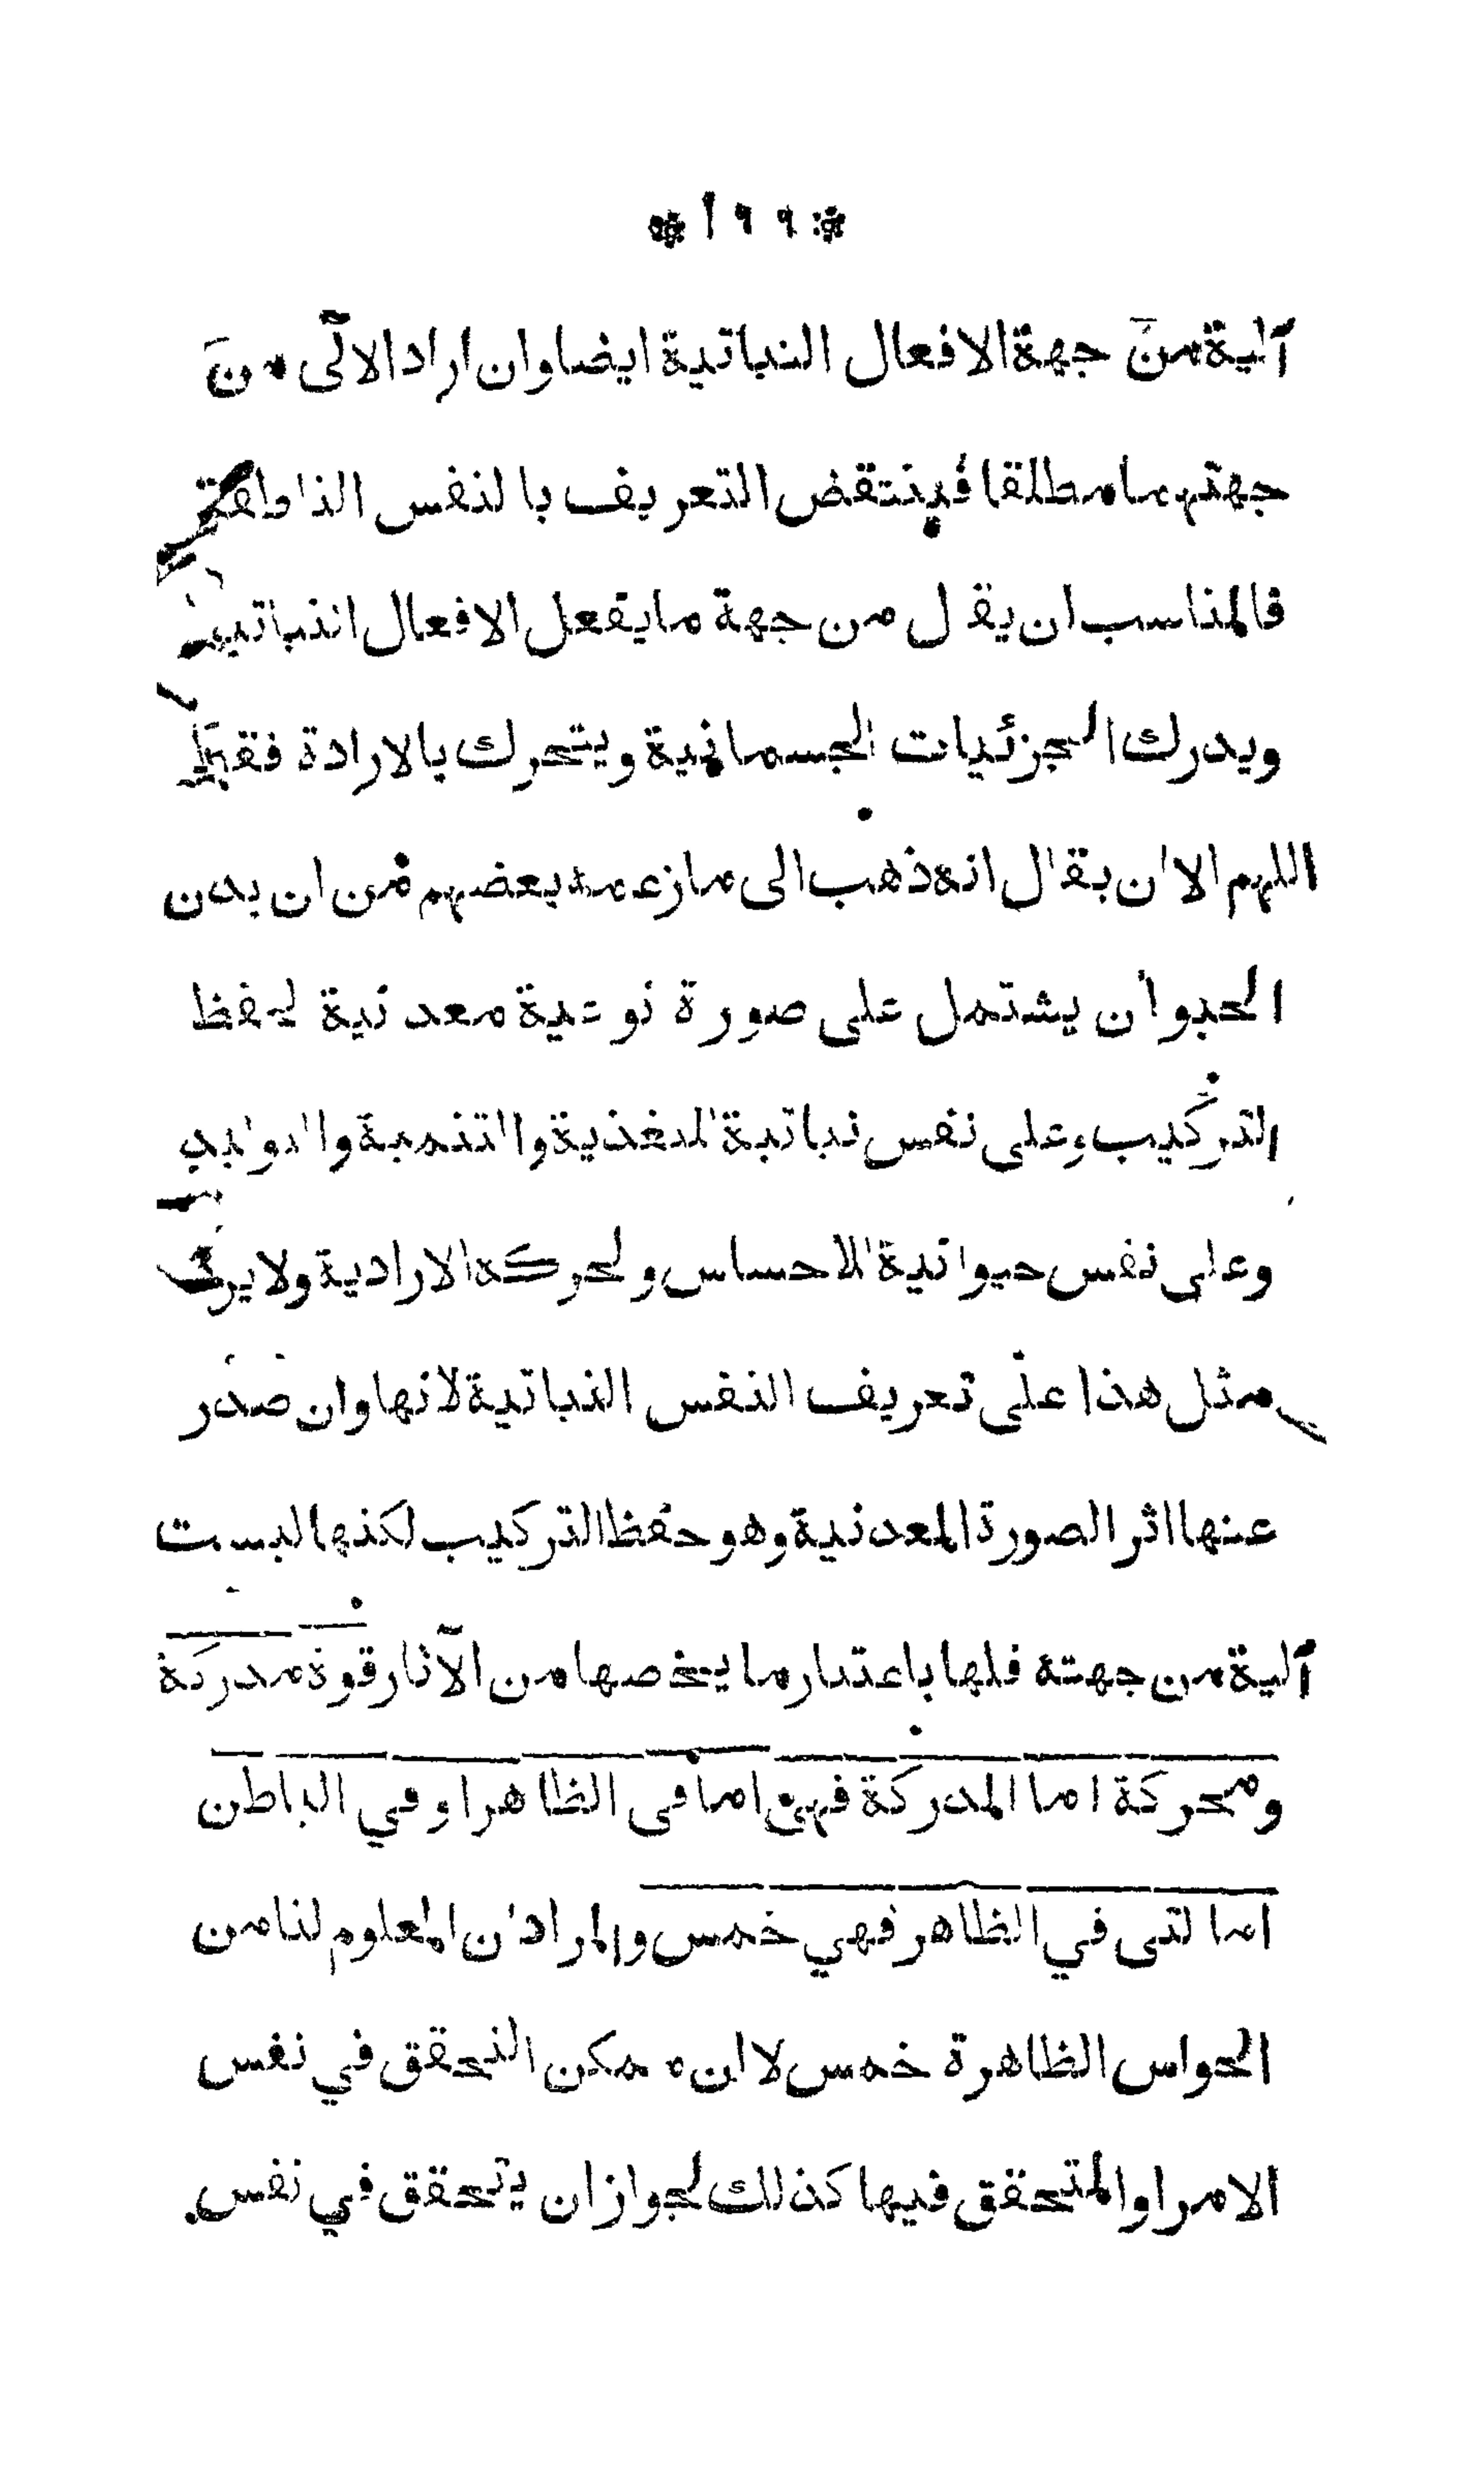 * ١٩٩ *
آلية من جهة الافعال النباتية ايضا وان اراد الآلى من
جهتهما مطلقا فينتقض التعريف بالنفس الناطقة
فالمناسب ان يقال من جهة ما يفعل الافعال النباتية
ويدرك الجزئيات الجسمانية ويتحرك بالارادة فقط
اللهم الا ان يقال انه ذهب الى ما زعمه بعضهم من ان بدن
الحيوان يشتمل على صورة نوعية معدنية لحفظ
التركيب وعلى نفس نباتية للتغذية والتنمية والتوليد
وعلى نفس حيوانية للاحساس والحركة الارادية ولا يرد
مثل هذا على تعريف النفس النباتية لانها وان صدر
عنها اثر الصورة المعدنية وهو حفظ التركيب لكنها ليست
آلية من جهته فلها باعتبار ما يخصها من الآثار قوة مدركة
ومحركة اما المدركة فهى اما فى الظاهر او في الباطن
اما التى في الظاهر فهي خمس والمراد ان المعلوم لنا من
الحواس الظاهرة خمس لا ان ممكن التحقق في نفس
الامر او المتحقق فيها كذلك لجواز ان يتحقق في نفس